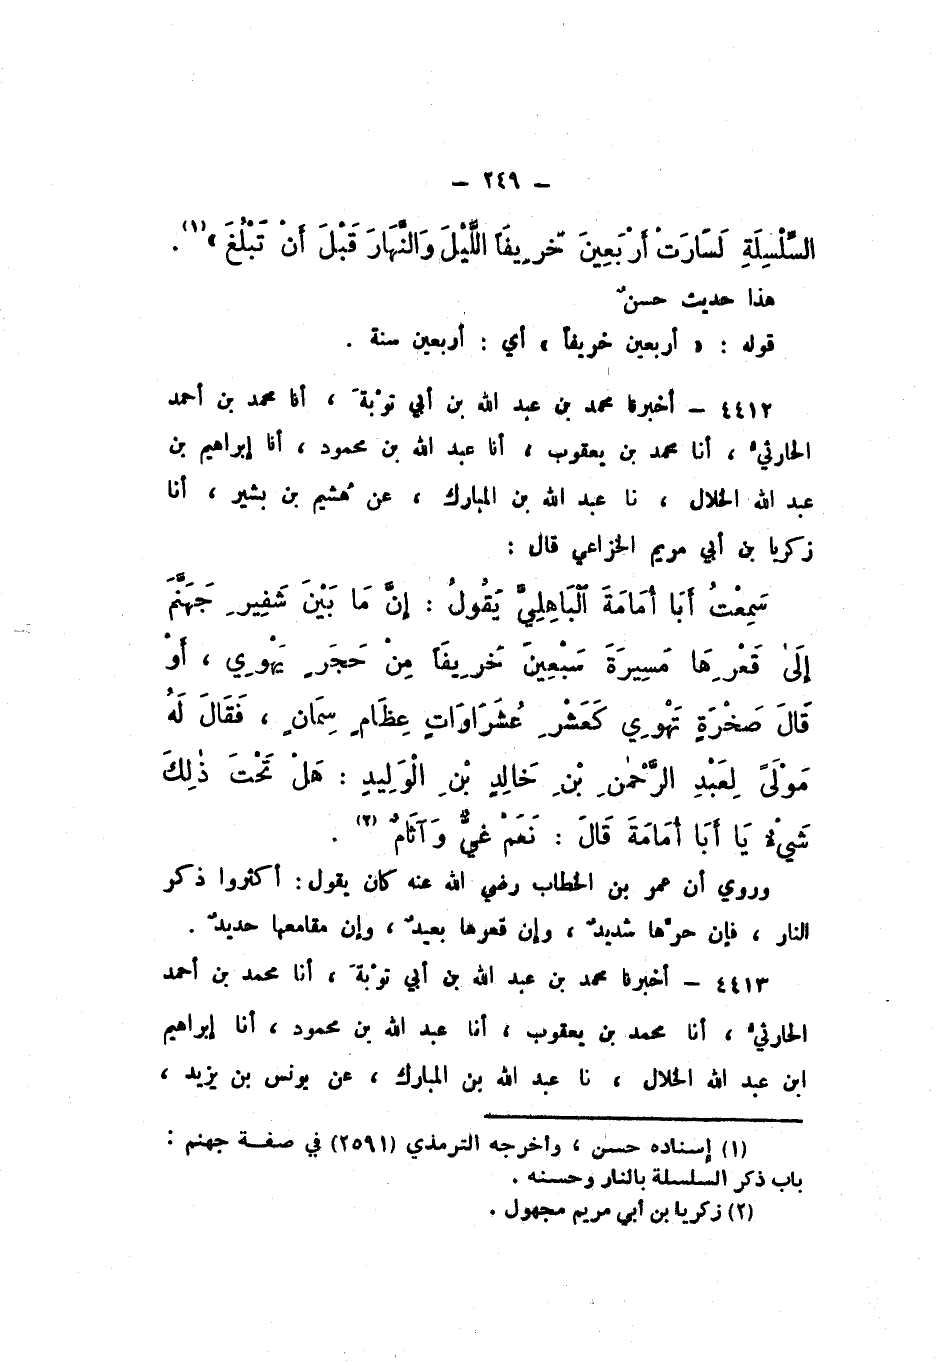 - ٢٤٩ -
السِّلْسِلَةِ لَسَارَتْ أَرْبَعِينَ خَرِيفَاً اللَّيْلَ وَالنَّهَارَ قَبْلَ أَنْ تَبْلُغَ » (١) .
هذا حديث حسنٌ
قوله : « أربعين خريفاً » أي : أربعين سنة .
٤٤١٢ – أخبرنا محمد بن عبد الله بن أبي توْبةَ ، أنا محمد بن أحمد
الحارثيُّ ، أنا محمد بن يعقوب ، أنا عبد الله بن محمود ، أنا إبراهيم بن
عبد الله الخلال ، نا عبد الله بن المبارك ، عن هُشيم بن بشير ، أنا
زكريا بن أبي مريم الخزاعي قال :
سَمِعْتُ أَبَا أُمَامَةَ الْبَاهِلِيَّ يَقُولُ : إِنَّ مَا بَيْنَ شَفِيرِ جَهَنَّمَ
إِلَىٰ قَعْرِهَا مَسِيرَةَ سَبْعِينَ خَرِيفَاً مِنْ حَجَرٍ يَهْوِي ، أَوْ
قَالَ صَخْرَةٍ تَهْوِي كَعَشْرِ عُشَرَاوَاتٍ عِظَامٍ سِمَانٍ ، فَقَالَ لَهُ
مَوْلَىً لِعَبْدِ الرَّحْمٰنِ بْنِ خَالِدٍ بْنِ الْوَلِيدِ : هَلْ تَحْتَ ذٰلِكَ
شَيْءٌ يَا أَبَا أُمَامَةَ قَالَ : نَعَمْ غَيٌّ وَآثَامٌ (٢) .
وروي أن عمر بن الخطاب رضي الله عنه كان يقول : أكثروا ذكر
النار ، فإن حرَّها شديدٌ ، وإن قعرها بعيدٌ ، وإن مقامعها حديدٌ .
٤٤١٣ – أخبرنا محمد بن عبد الله بن أبي توْبةَ ، أنا محمد بن أحمد
الحارثيُّ ، أنا محمد بن يعقوب ، أنا عبد الله بن محمود ، أنا إبراهيم
ابن عبد الله الخلال ، نا عبد الله بن المبارك ، عن يونس بن يزيد ،
(١) إسناده حسن ، وأخرجه الترمذي (٢٥٩١) في صفة جهنم :
باب ذكر السلسلة بالنار وحسنه .
(٢) زكريا بن أبي مريم مجهول .